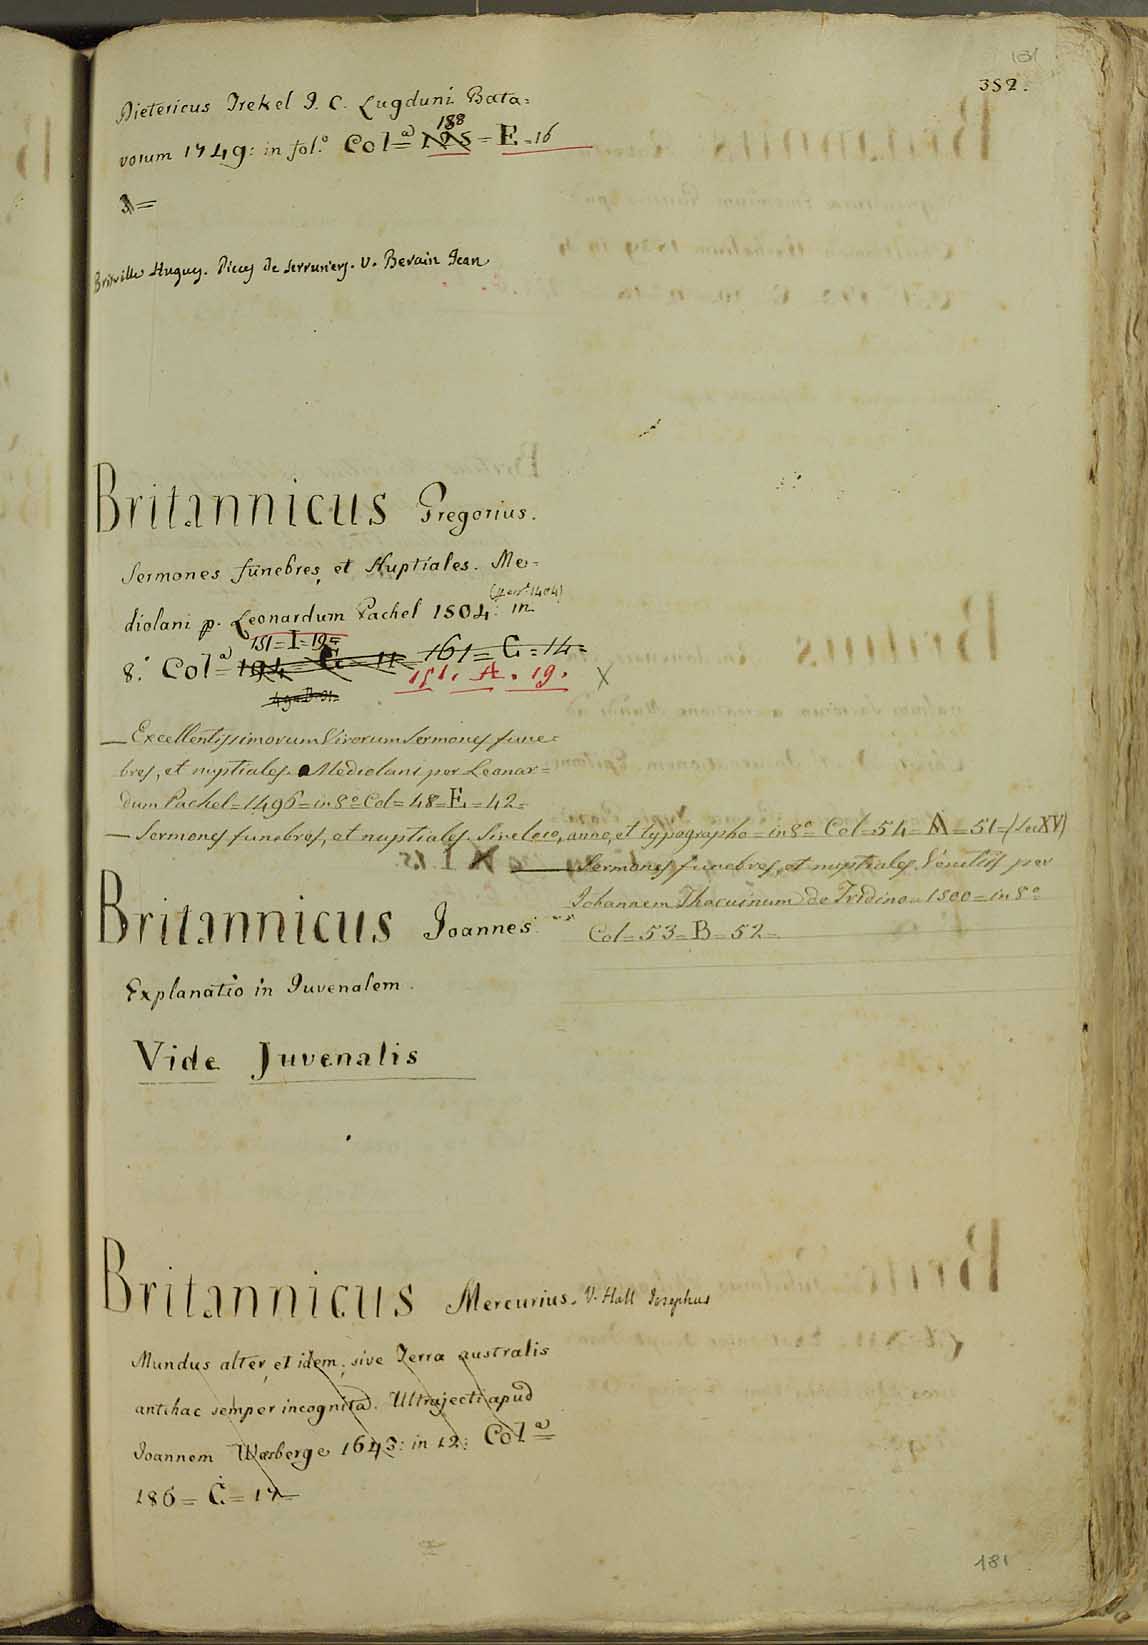 181
352.
Dietericus Trekel I. C. Lugduni Bata=
vorum 1749: in fol.° Col=ª 188 = E = 16
Briville Huguy. Pieces de serruriery. V. Berain Jean
Britannicus Gregorius.
Sermones funebres, et Nuptiales. Me=
diolani p. Leonardum Pachel 1504: in
8.° Col=ª 194 = C = 11 = 161 = C = 14 =
151 = I = 19 =
151. A. 19. X
49 = D = 31 =
— Excellentissimorum Virorum Sermones fune=
bres, et nuptiales. Mediolani per Leonar=
dum Pachel = 1496 = in 8° Col = 48 = E = 42 =
— Sermones funebres, et nuptiales. Sine loco, anno, et typographo = in 8° Col = 54 = A = 51 = (Sec XV)
— Sermones funebres, et nuptiales. Venetiis per
Johannem Thacuinum de Tridino = 1500 = in 8°
Col = 53 = B = 52 =
Britannicus Joannes
Explanatio in Iuvenalem.
Vide Juvenalis
Britannicus Mercurius. V. Hall Josephus
Mundus alter, et idem, sive Terra australis
antehac semper incognita. Ultrajecti apud
Joannem Wæsberge 1643: in 12: Col.ª=
186 = C = 17 =
181